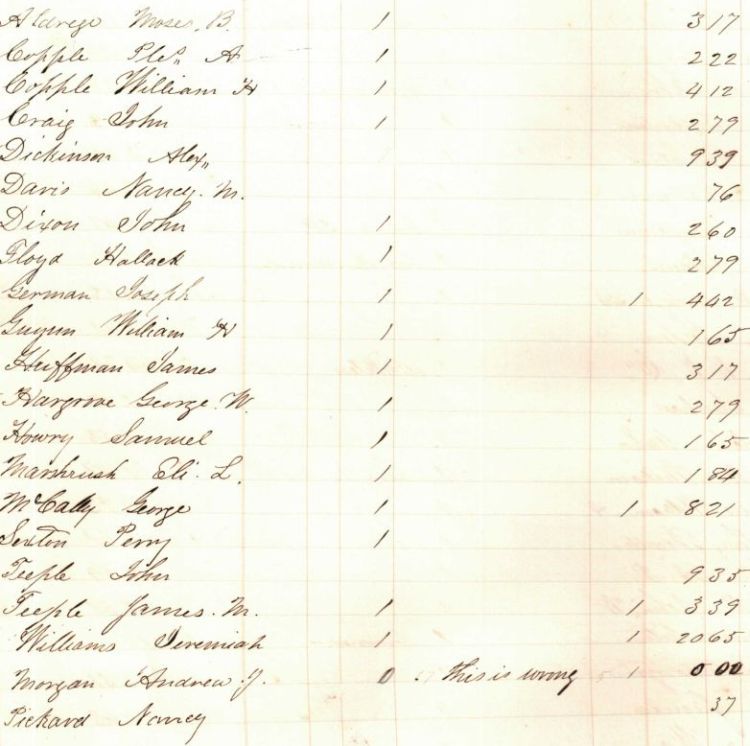 Aldrege Moses. B. 1 3 17
Copple Ples A 1 2 22
Copple William H 1 4 12
Craig John 1 2 79
Dickinson Alex,, 9 39
Davis Nancy. M. 76
Dixon John 1 2 60
Floyd Hallack 1 2 79
German Joseph 1 1 4 42
Guyun William H 1 1 65
Huffman James 1 3 17
Hargrove George. W. 1 2 79
Howry Samuel 1 1 65
Marshrush Eli. L. 1 1 84
McCally George 1 1 8 21
Sexton Perry 1
Teeple John 9 35
Teeple James. M. 1 1 3 39
Williams Jeremiah 1 1 20 65
Morgan Andrew. J. 0 . This is wrong 1 0 00
Pickard Nancy 37